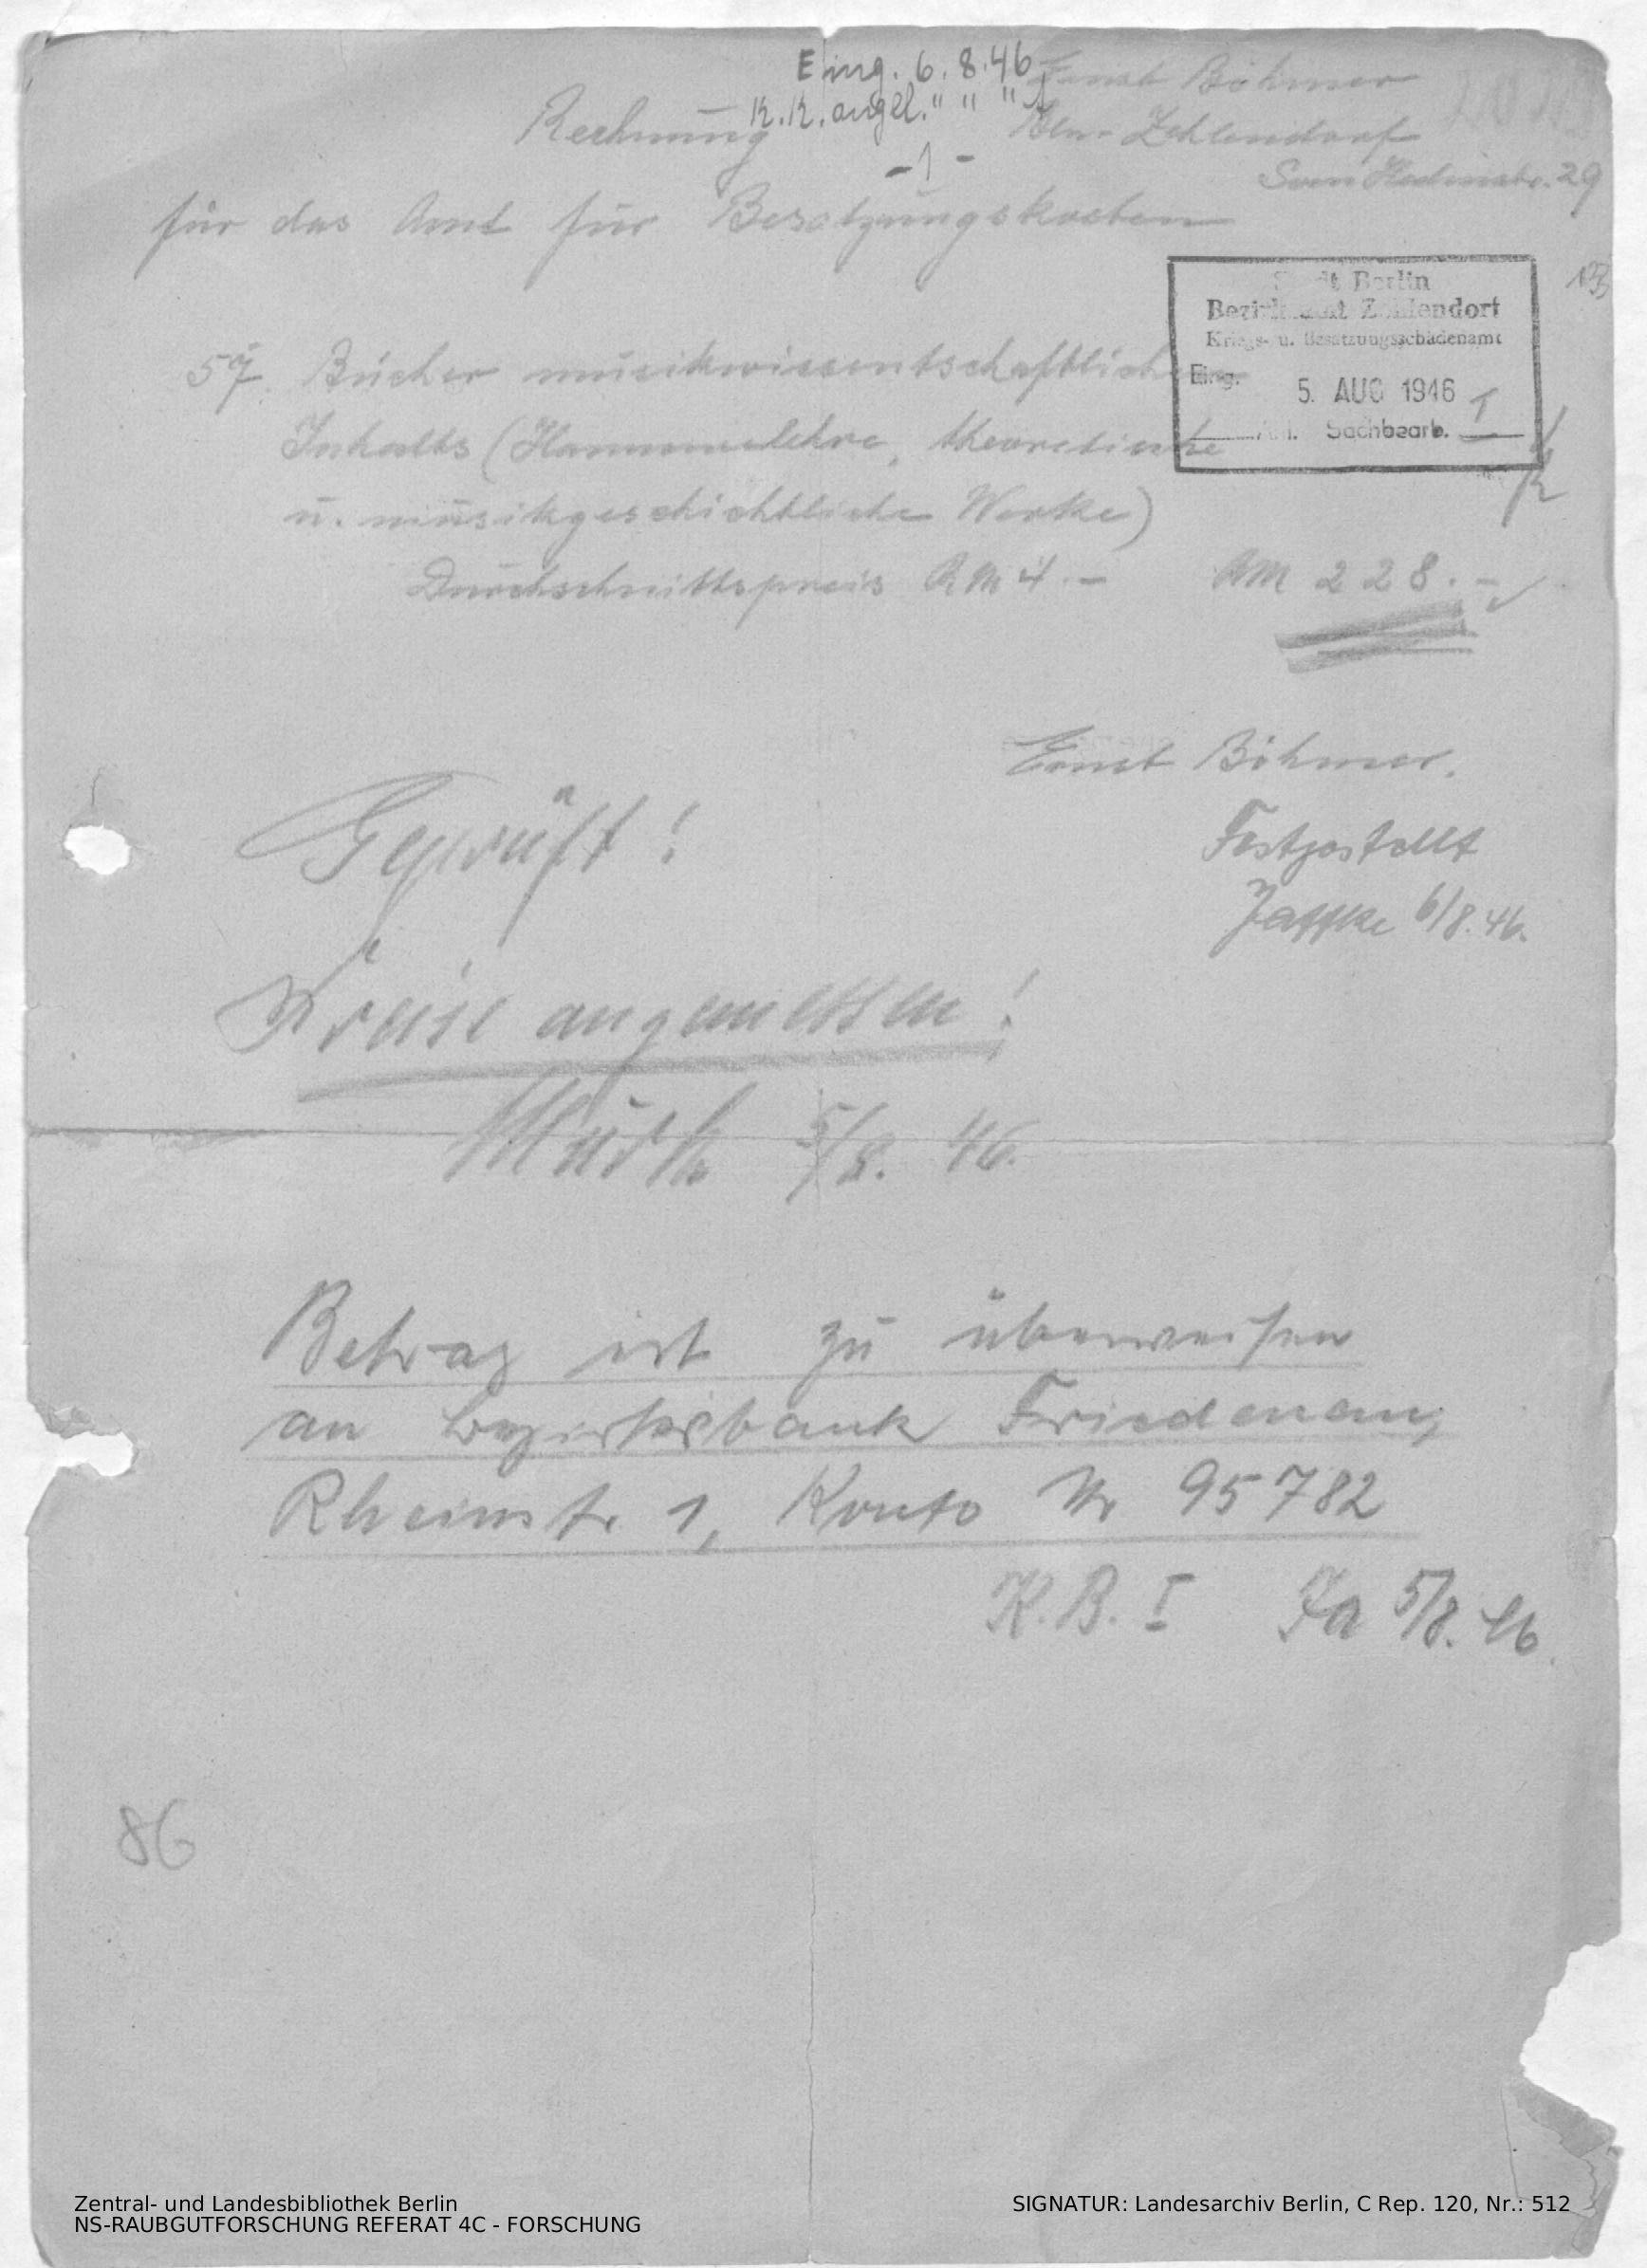 Eing. 6. 8. 46
K.K. angel. " " "
Ernst Böhmer
Rechnung
Bln. Zehlendorf
- 1 -
Sven Hedinstr. 29
für das Amt für Besatzungskosten
Stadt Berlin
Bezirksamt Zehlendorf
Kriegs- u. Besatzungsschädenamt
Eing. 5. AUG 1946 I
Anl. Sachbearb.
57 Bücher musikwissentschaftlichen
Inhalts (Harmonielehre, theoretische
u. musikgeschichtliche Werke)
Durchschnittspreis RM 4.- RM 228.-
Ernst Böhmer.
Geprüft!
Festgestellt
Jaffke 6/8. 46.
Preise angemessen!
5/8. 46.
Betrag ist zu überweisen
an Bezirksbank Friedenau,
Rheinstr. 1, Konto Nr 95782
K. B. I Ja 5/8. 46.
86
Zentral- und Landesbibliothek Berlin
NS-RAUBGUTFORSCHUNG REFERAT 4C - FORSCHUNG
SIGNATUR: Landesarchiv Berlin, C Rep. 120, Nr.: 512